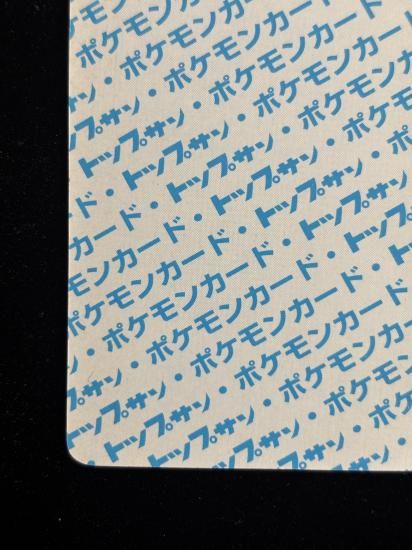 ポケモンカ
サン・ポケモンカード
トップサン・ポケモンカード
・トップサン・ポケモンカード
ド・トップサン・ポケモンカ
カード・トップサン・ポケモ
モンカード・トップサン・ポ
ポケモンカード・トップサン
・ポケモンカード・トップサ
ン・ポケモンカード・トッ
サン・ポケモンカード・
トップサン・ポケモンカー
・トップサン・ポケモンカ
トップサン・ポケモ
トップサン・ポケ
プサン・ポ